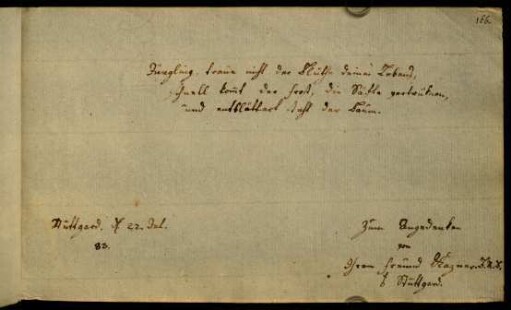 186.
Jüngling, traue nicht der Blüthe deines Lebens,
schnell komt der Frost, die Säfte vertrüknen,
und entblättert steht der Baum.
Stuttgard. d 22. Jul.
83.
Zum Angedenken
von
Ihrem Freund
Stuttgard.